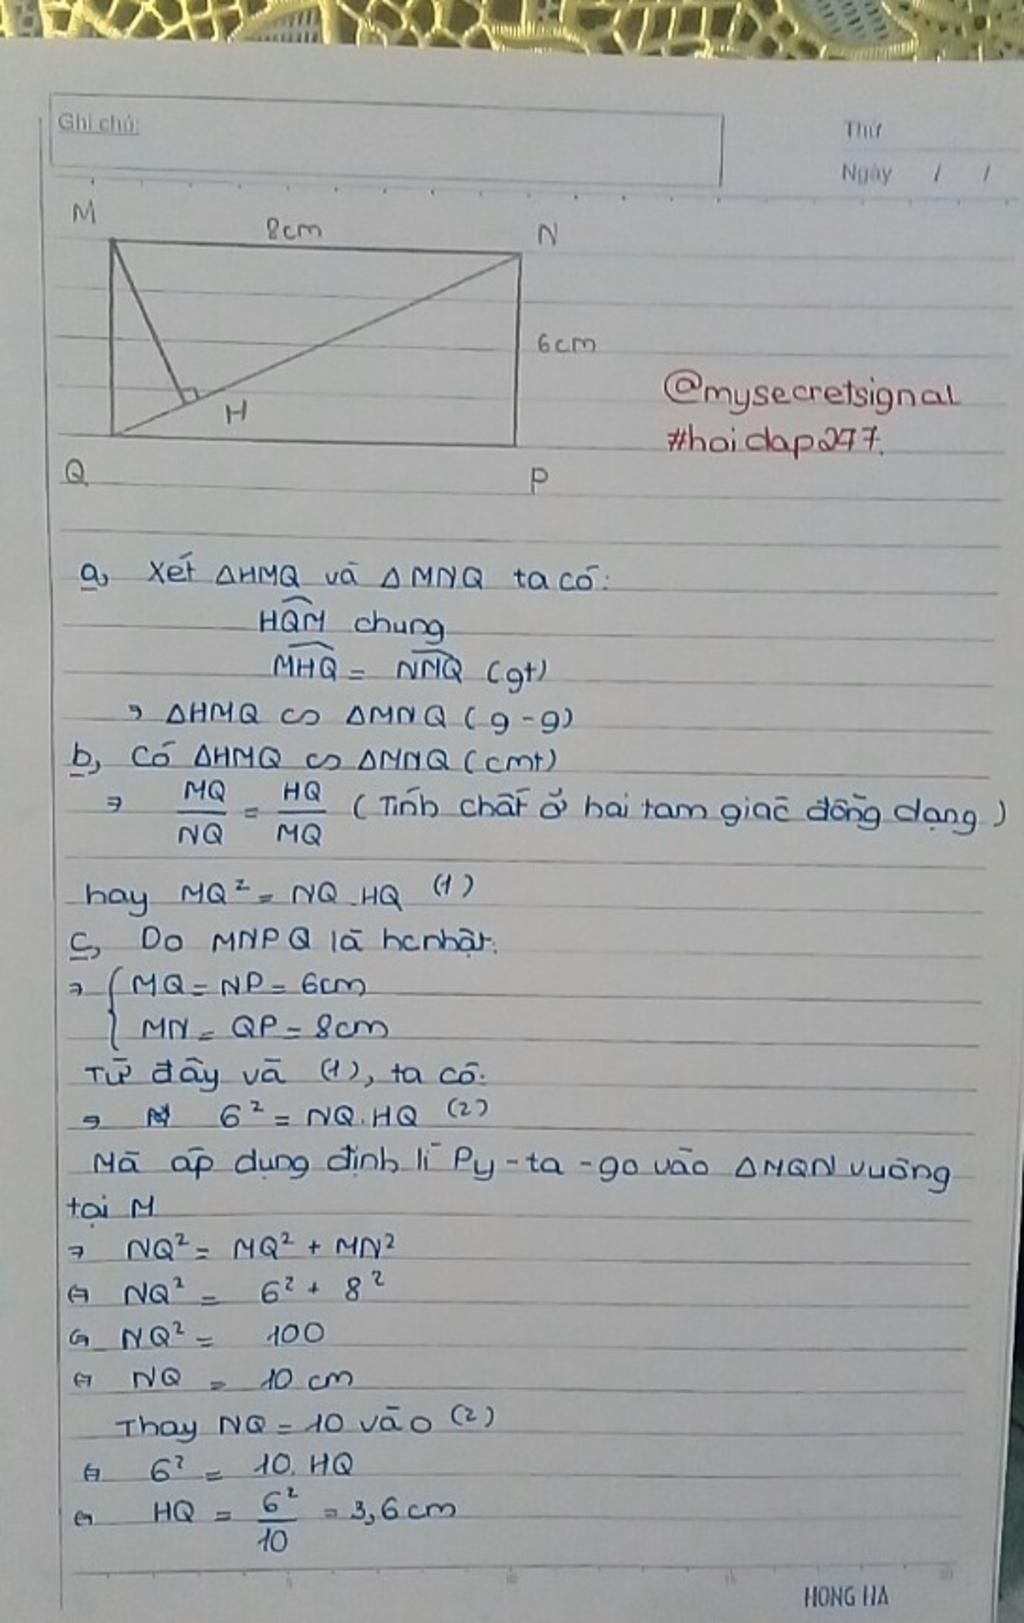 Ghi chú:
Thứ
Ngày / /
M
8cm
N
6cm
@mysecretsignal
#hoidap247.
H
Q
P
a, Xét ΔHMQ và ΔMNQ ta có:
HQM chung
MHQ = NMQ (gt)
⇒ ΔHMQ ∽ ΔMNQ (g-g)
b, Có ΔHMQ ∽ ΔMNQ (cmt)
⇒ MQ/NQ = HQ/MQ (Tính chất ở hai tam giác đồng dạng)
hay MQ² = NQ.HQ (1)
c, Do MNPQ là hcnhật.
⇒ { MQ = NP = 6cm
MN = QP = 8cm
Từ đây và (1), ta có:
⇒ 6² = NQ.HQ (2)
Mà áp dụng định lí Py-ta-go vào ΔMQN vuông
tại M
⇒ NQ² = MQ² + MN²
⇔ NQ² = 6² + 8²
⇔ NQ² = 100
⇔ NQ = 10 cm
Thay NQ = 10 vào (2)
⇔ 6² = 10.HQ
⇔ HQ = 6²/10 = 3,6cm
HONG HA